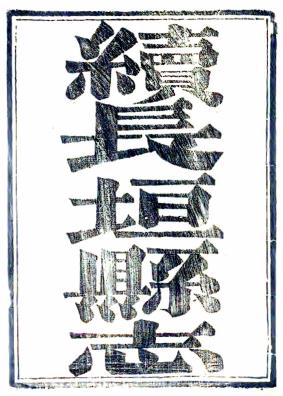 續長垣縣志